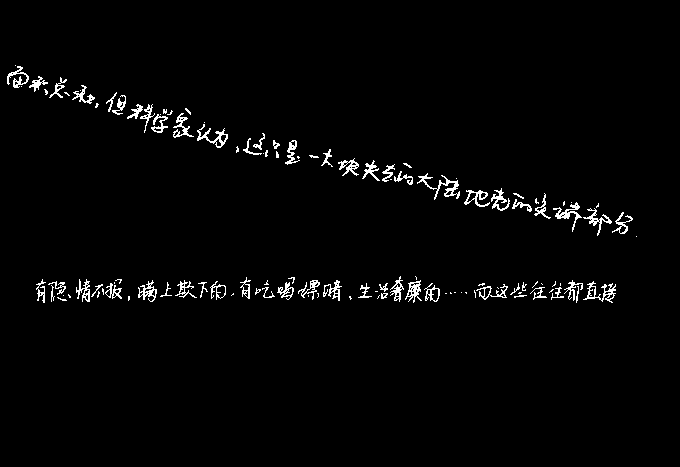 面积总和,但科学家认为,这只是一大块失去的大陆地壳的尖端部分.
有隐情不报,瞒上欺下的.有吃喝嫖赌、生活奢靡的……而这些往往都直接